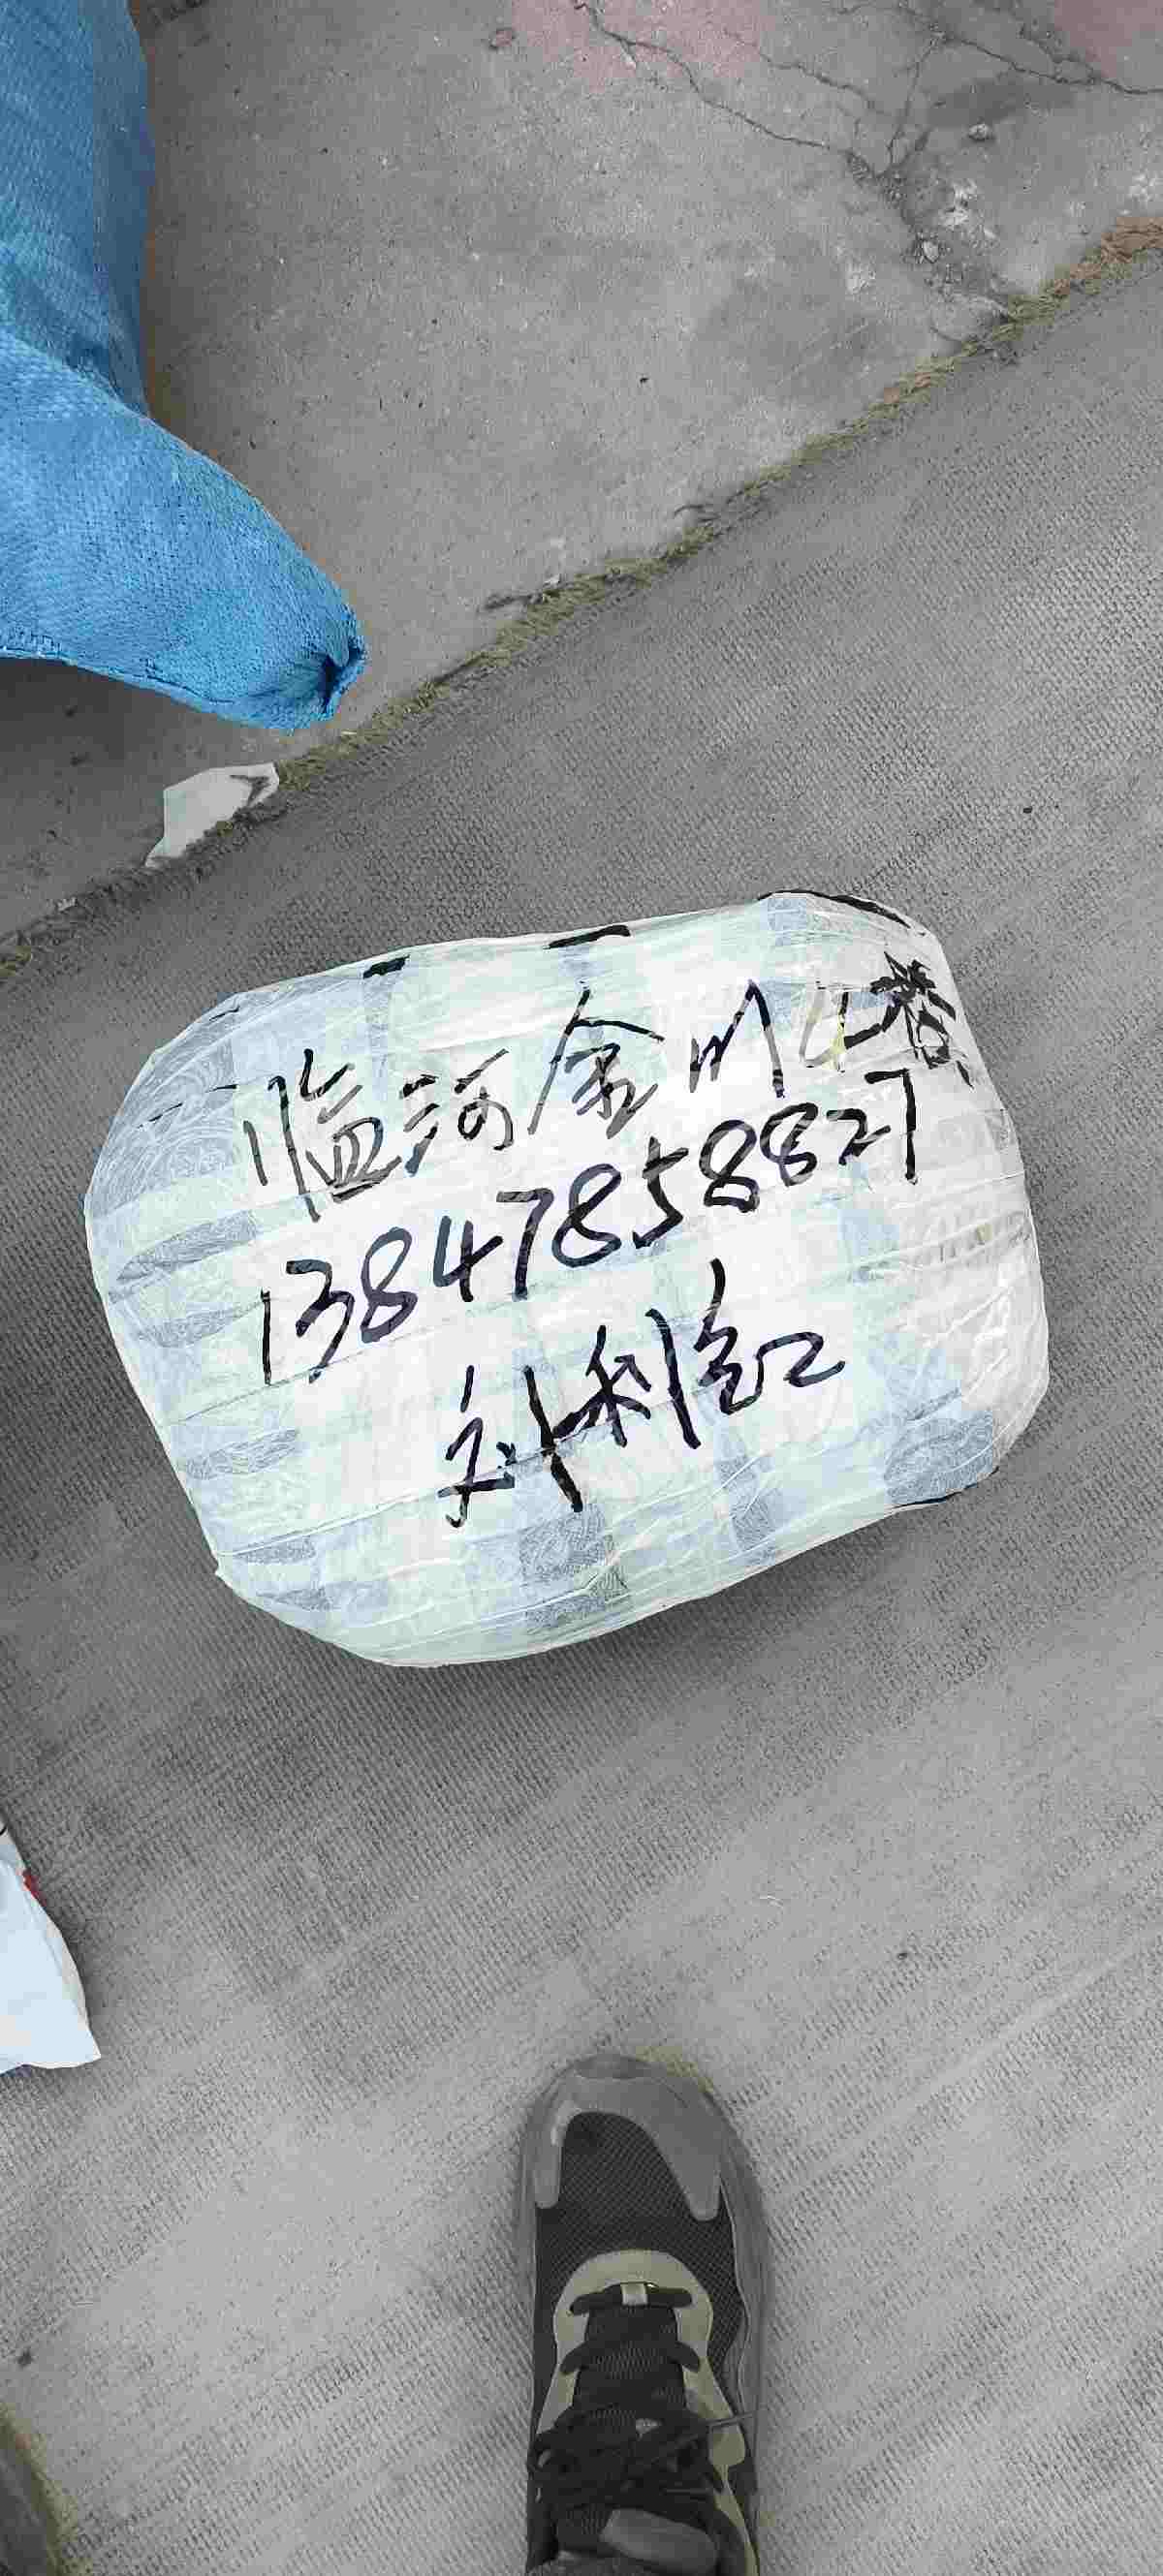 临河金川
13847858827
利红